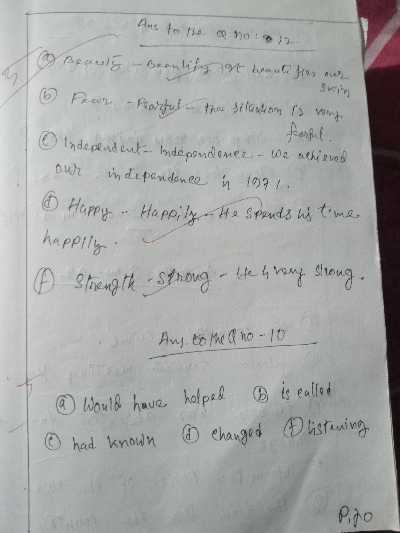 Ans to the Q no: 12
(a) Beauty - Beautify - It beautifies our
skin
(b) Fear - Fearful - the situation is very
fearful.
(c) Independent - Independence - We achieved
our independence in 1971.
(d) Happy - Happily - He spends his time
happily.
(f) Strength - Strong - He is very strong.
Ans to the Q no - 10
(a) Would have helped (b) is called
(c) had known (d) changed (f) listening
P.T.O